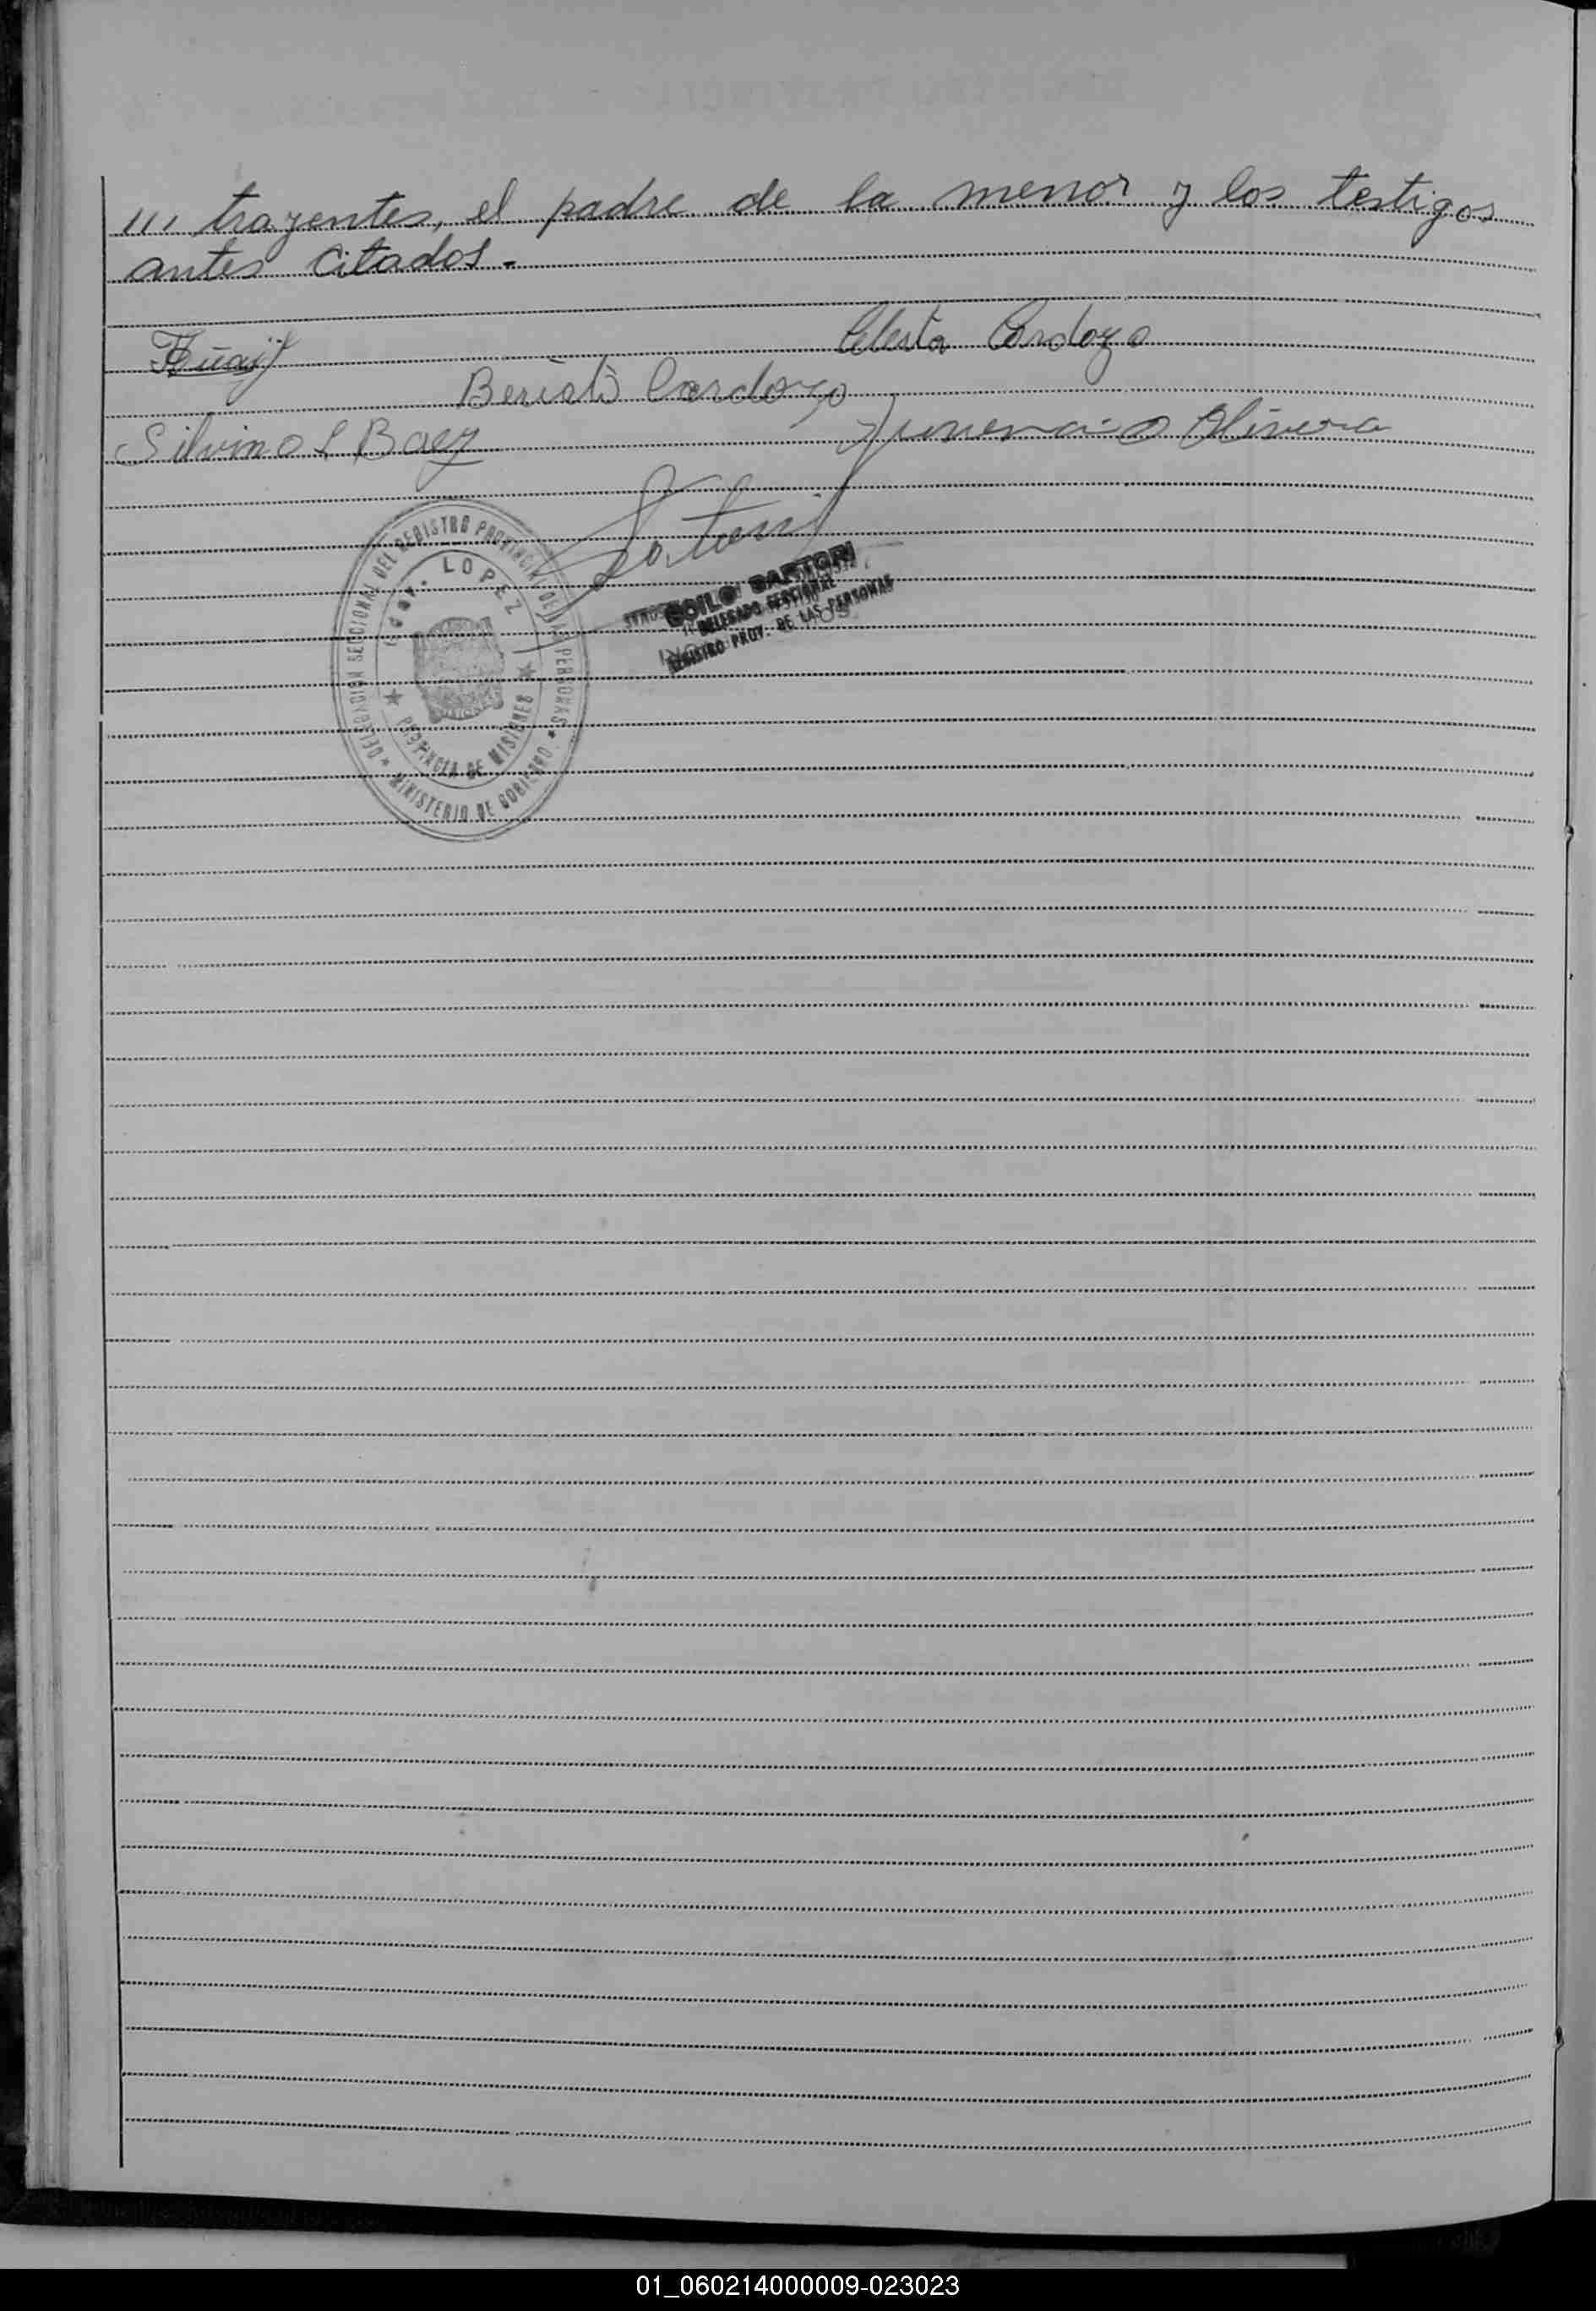 /// trayentes, el padre de la menor y los testigos
antes citados.-
Celesta Cardozo
Cardozo
Silvino S Baez
Olivera
Sartori
DELEGACION SECCIONAL DEL REGISTRO PROVINCIAL DE LAS PERSONAS * MINISTERIO DE GOBIERNO *
LOPEZ
PROVINCIA DE MISIONES
ZOILO SARTORI
DELEGADO SECCIONAL
REGISTRO PROV. DE LAS PERSONAS
01_060214000009-023023